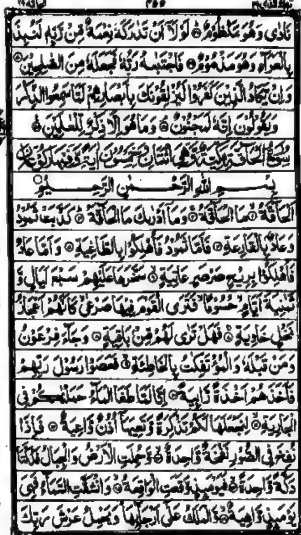 نَادٰى وَهُوَ مَكْظُوْمٌ ۞ لَوْلَاۤ اَنْ تَدٰرَكَهٗ نِعْمَةٌ مِّنْ رَّبِّهٖ لَنُبِذَ
بِالْعَرَآءِ وَهُوَ مَذْمُوْمٌ ۞ فَاجْتَبٰىهُ رَبُّهٗ فَجَعَلَهٗ مِنَ الصّٰلِحِيْنَ ۞
وَاِنْ يَّكَادُ الَّذِيْنَ كَفَرُوْا لَيُزْلِقُوْنَكَ بِاَبْصَارِهِمْ لَمَّا سَمِعُوا الذِّكْرَ
وَيَقُوْلُوْنَ اِنَّهٗ لَمَجْنُوْنٌ ۞ وَمَا هُوَ اِلَّا ذِكْرٌ لِّلْعٰلَمِيْنَ ۞
سُوْرَةُ الْحَآقَّةِ مَكِّيَّةٌ وَّهِيَ اثْنَتَانِ وَخَمْسُوْنَ اٰيَةً وَّفِيْهَا رُكُوْعَانِ
بِسْمِ اللهِ الرَّحْمٰنِ الرَّحِيْمِ
اَلْحَآقَّةُ ۞ مَا الْحَآقَّةُ ۞ وَمَاۤ اَدْرٰىكَ مَا الْحَآقَّةُ ۞ كَذَّبَتْ ثَمُوْدُ
وَعَادٌۢ بِالْقَارِعَةِ ۞ فَاَمَّا ثَمُوْدُ فَاُهْلِكُوْا بِالطَّاغِيَةِ ۞ وَاَمَّا عَادٌ
فَاُهْلِكُوْا بِرِيْحٍ صَرْصَرٍ عَاتِيَةٍ ۞ سَخَّرَهَا عَلَيْهِمْ سَبْعَ لَيَالٍ وَّ
ثَمٰنِيَةَ اَيَّامٍ حُسُوْمًا فَتَرَى الْقَوْمَ فِيْهَا صَرْعٰى كَاَنَّهُمْ اَعْجَازُ
نَخْلٍ خَاوِيَةٍ ۞ فَهَلْ تَرٰى لَهُمْ مِّنْۢ بَاقِيَةٍ ۞ وَجَآءَ فِرْعَوْنُ
وَمَنْ قَبْلَهٗ وَالْمُؤْتَفِكٰتُ بِالْخَاطِئَةِ ۞ فَعَصَوْا رَسُوْلَ رَبِّهِمْ
فَاَخَذَهُمْ اَخْذَةً رَّابِيَةً ۞ اِنَّا لَمَّا طَغَا الْمَآءُ حَمَلْنٰكُمْ فِى
الْجَارِيَةِ ۞ لِنَجْعَلَهَا لَكُمْ تَذْكِرَةً وَّتَعِيَهَاۤ اُذُنٌ وَّاعِيَةٌ ۞ فَاِذَا
نُفِخَ فِى الصُّوْرِ نَفْخَةٌ وَّاحِدَةٌ ۞ وَّحُمِلَتِ الْاَرْضُ وَالْجِبَالُ فَدُكَّتَا
دَكَّةً وَّاحِدَةً ۞ فَيَوْمَئِذٍ وَّقَعَتِ الْوَاقِعَةُ ۞ وَانْشَقَّتِ السَّمَآءُ فَهِيَ
يَوْمَئِذٍ وَّاهِيَةٌ ۞ وَّالْمَلَكُ عَلٰۤى اَرْجَآئِهَا وَيَحْمِلُ عَرْشَ رَبِّكَ